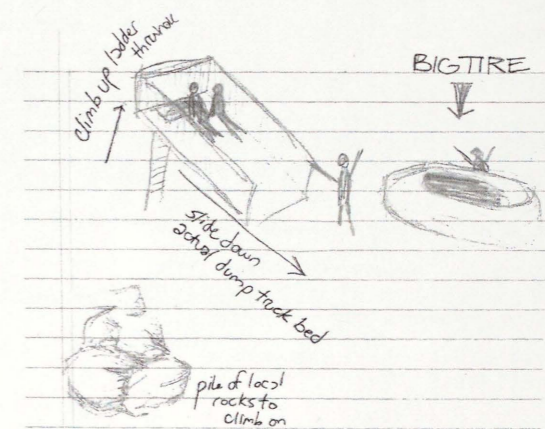 climb up ladder
BIG TIRE
slide down
actual dump truck bed
pile of local
rocks to
climb on